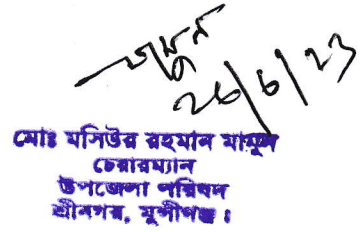 26/6/23
মোঃ মসিউর রহমান মামুন
চেয়ারম্যান
উপজেলা পরিষদ
শ্রীনগর, মুন্সীগঞ্জ।